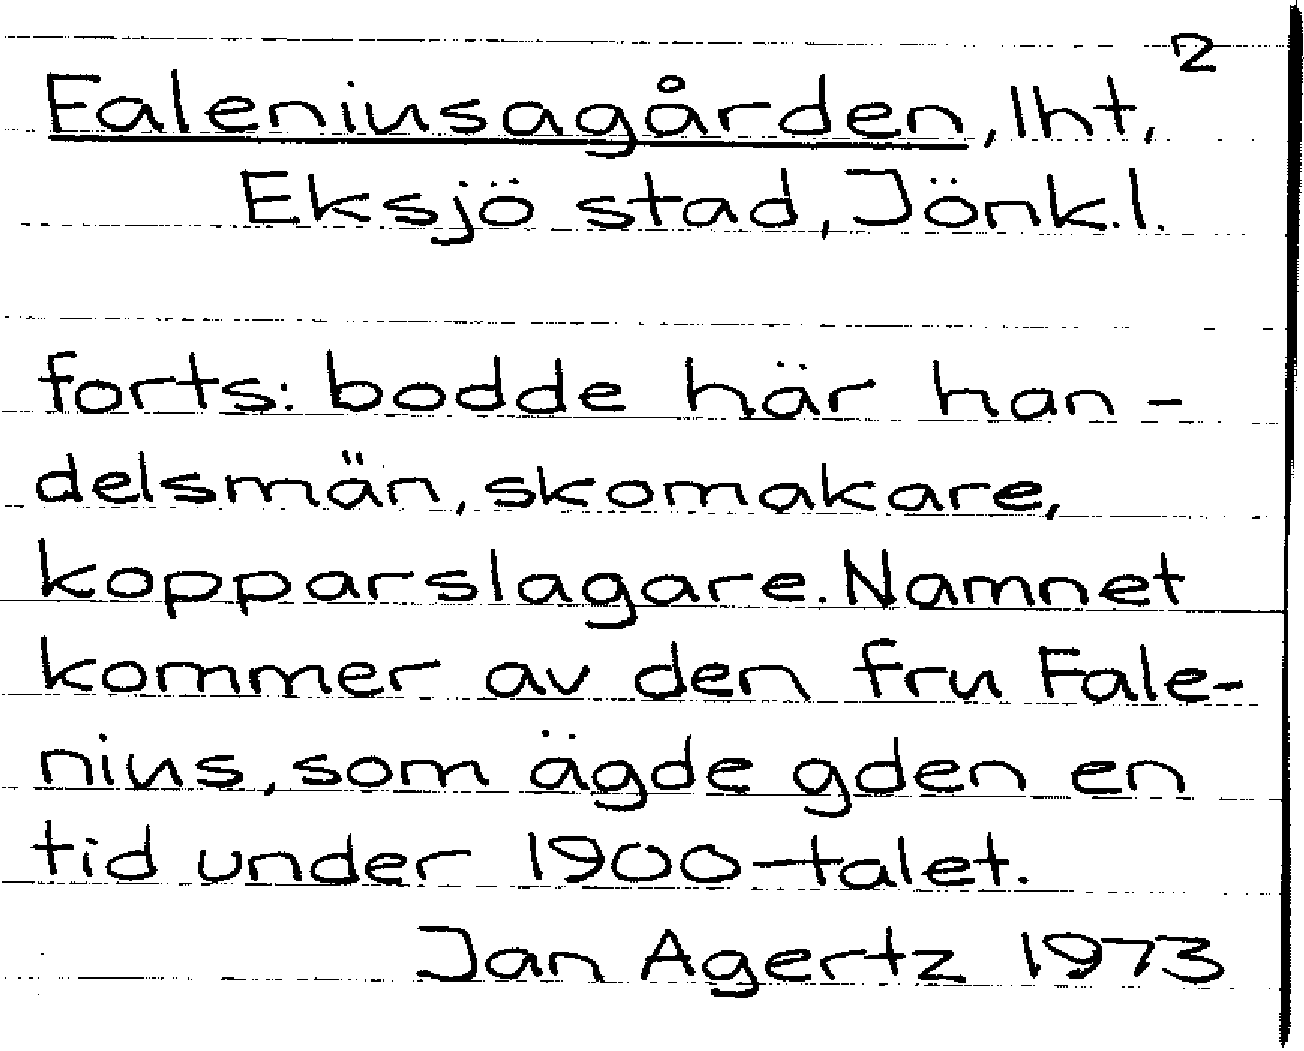 2
Faleniusagården, lht,
Eksjö stad, Jönk.l.
forts: bodde här han-
delsmän, skomakare,
kopparslagare. Namnet
kommer av den fru Fale-
nius, som ägde gden en
tid under 1900-talet.
Jan Agertz 1973